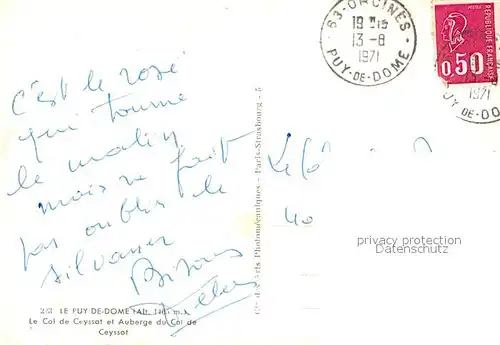 C'est le rosé
qui tourne
le matin
mais ne fait
pas oublier le
silvaner
Bisous
233 LE PUY DE-DOME (Alt. 1465 m.)
Le Col de Ceyssat et Auberge du Col de
Ceyssat
Cie des Arts Photomécaniques - Paris-Strasbourg - 5
63-ORCINES
19H15
13-8
1971
PUY-DE-DOME
REPUBLIQUE FRANÇAISE
0,50
1971
PUY DE-DO
privacy protection
Datenschutz